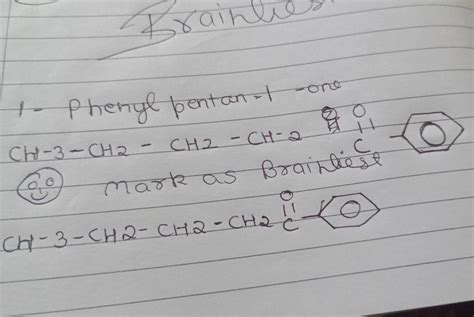 Brainlies
1- Phenyl pentan-1 -one
CH-3-CH2 - CH2 -CH-2 O
C
Mark as Brainliest
O
CH-3-CH2-CH2-CH2 C